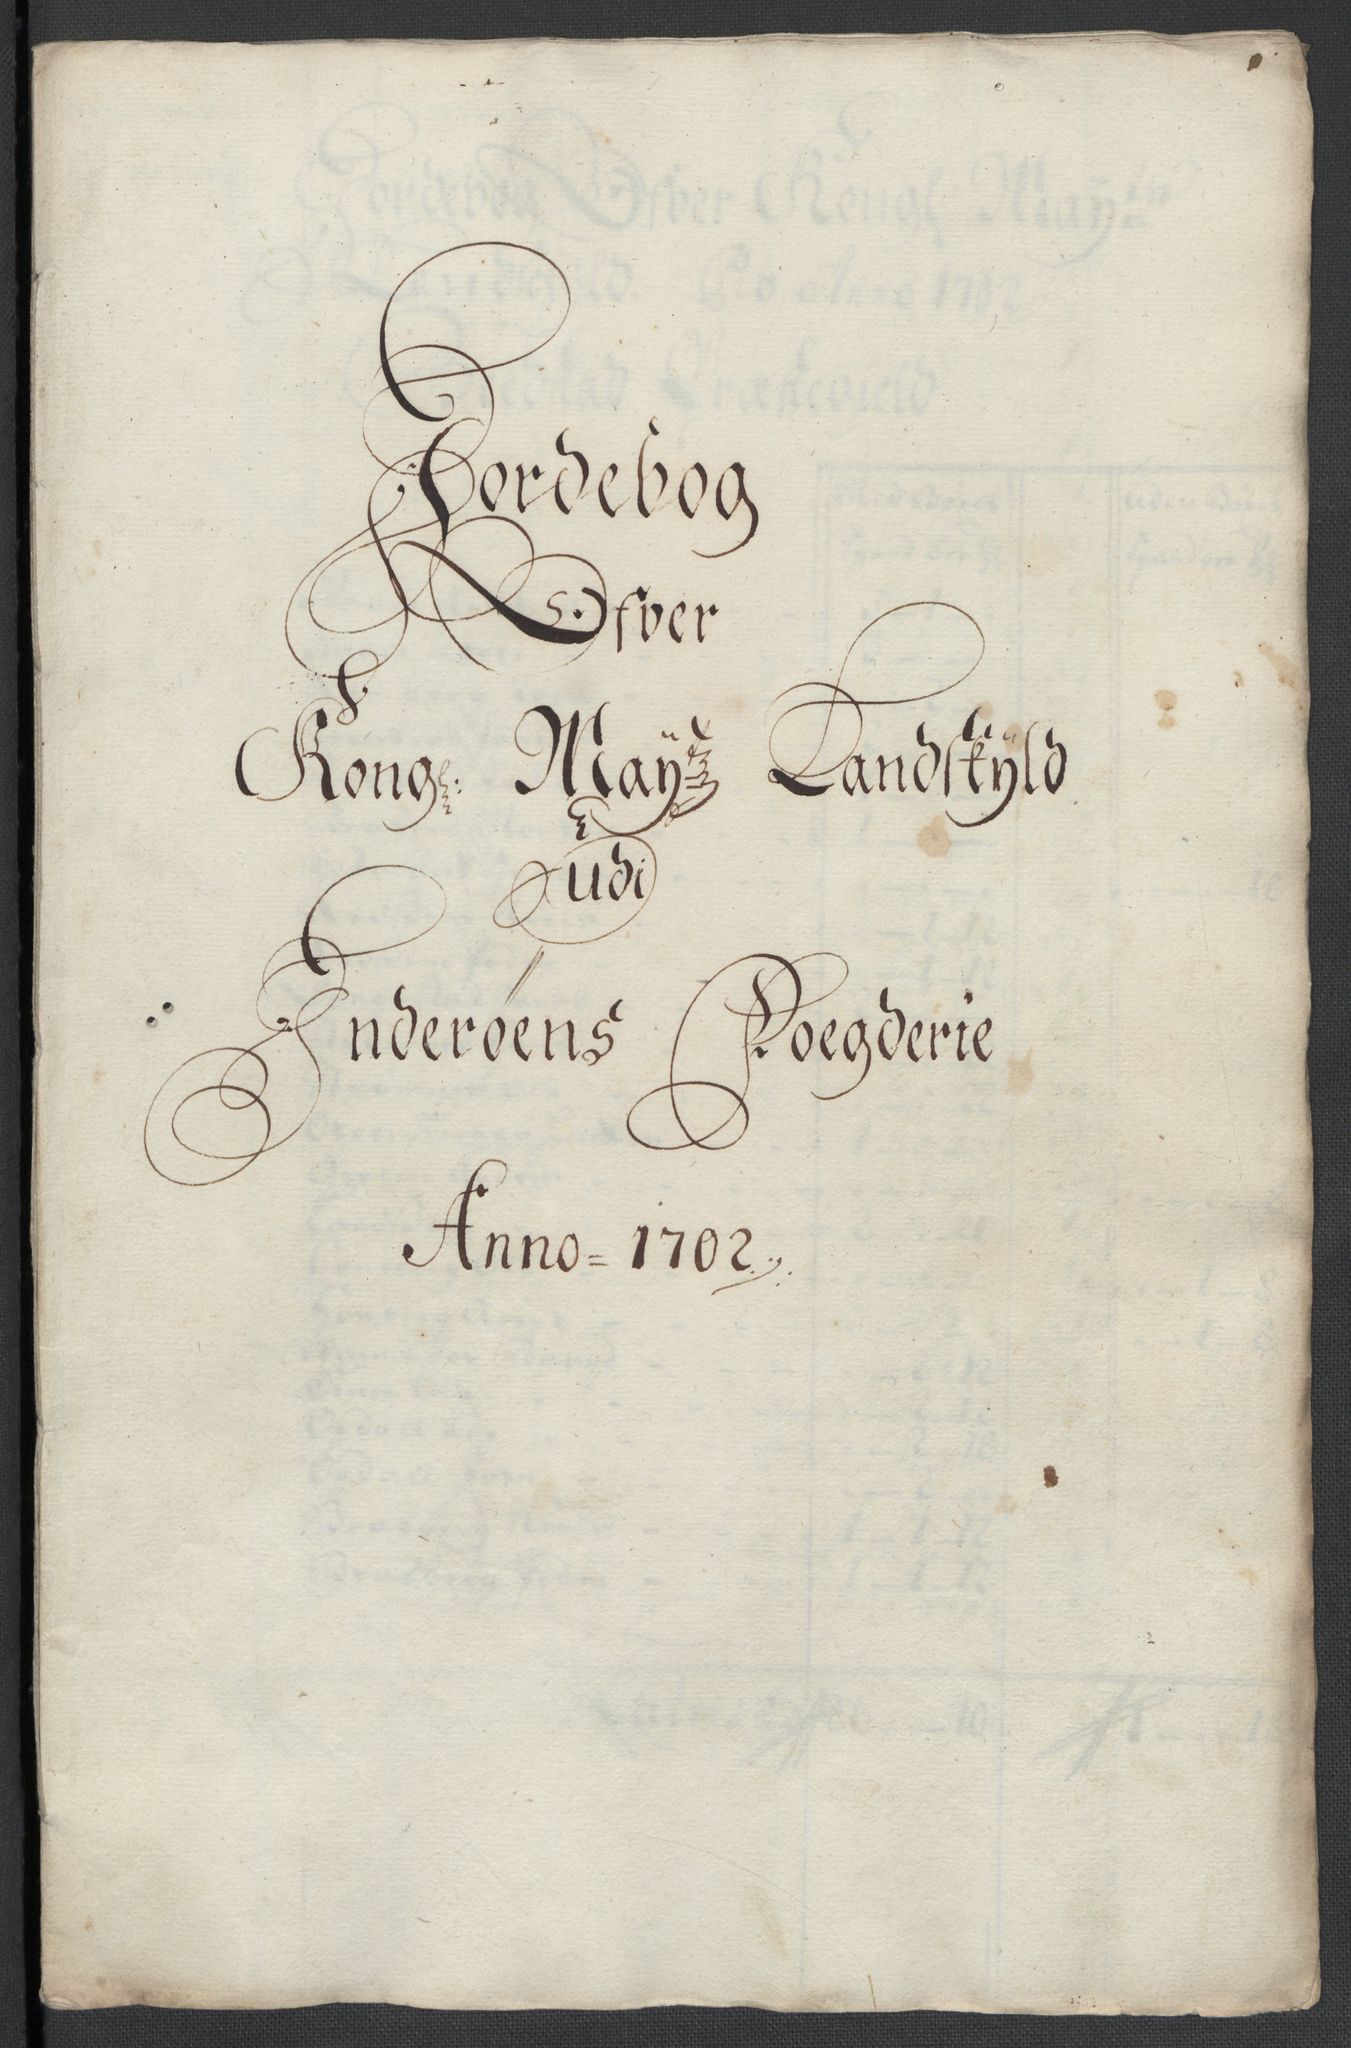 Jordebog
Ofver
Kongl: Mayts Landskyld
udi
Inderøens Foegderie
Anno = 1702